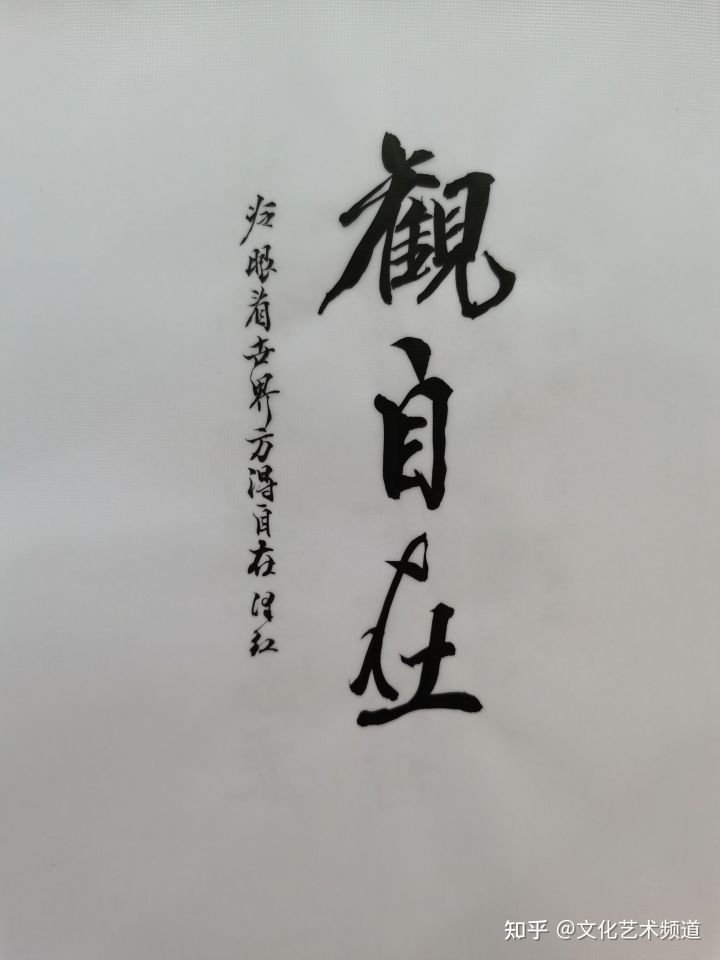 觀自在
眼看世界方得自在
知乎 @文化艺术频道